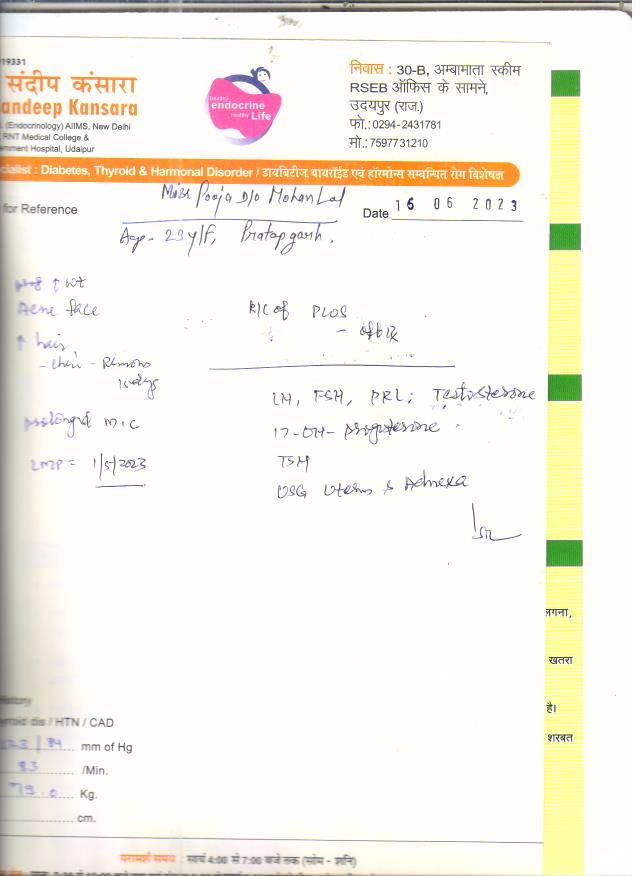 19331
संदीप कंसारा
andeep Kansara
(Endocrinology) AIIMS, New Delhi
RNT Medical College &
ernment Hospital, Udaipur
healthy
endocrine
healthy Life
निवास : 30-B, अम्बामाता स्कीम
RSEB ऑफिस के सामने,
उदयपुर (राज.)
फो.:0294-2431781
मो.:7597731210
cialist : Diabetes, Thyroid & Harmonal Disorder / डायबिटीज, थायरॉईड एवं हॉरमोन्स सम्बन्धित रोग विशेषज्ञ
Miss Pooja D/o Mohan Lal
for Reference
Date 16 06 2023
Age - 23 y/F, Pratapgarh.
↑ wt
Acne face
K/C of PCOS
- off Rx
↑ hair
- chin - Removes
days
LH, FSH, PRL, Testosterone
prolonged M.C
17-OH-progesterone
LMP = 1/5/2023
TSH
USG Uterus & Adnexa
लगना,
खतरा
है।
शरबत
History
yroid dis / HTN / CAD
123/84 mm of Hg
83 /Min.
79.0 Kg.
cm.
परामर्श समय : सायं 4:00 से 7:00 बजे तक (सोम - शनि)